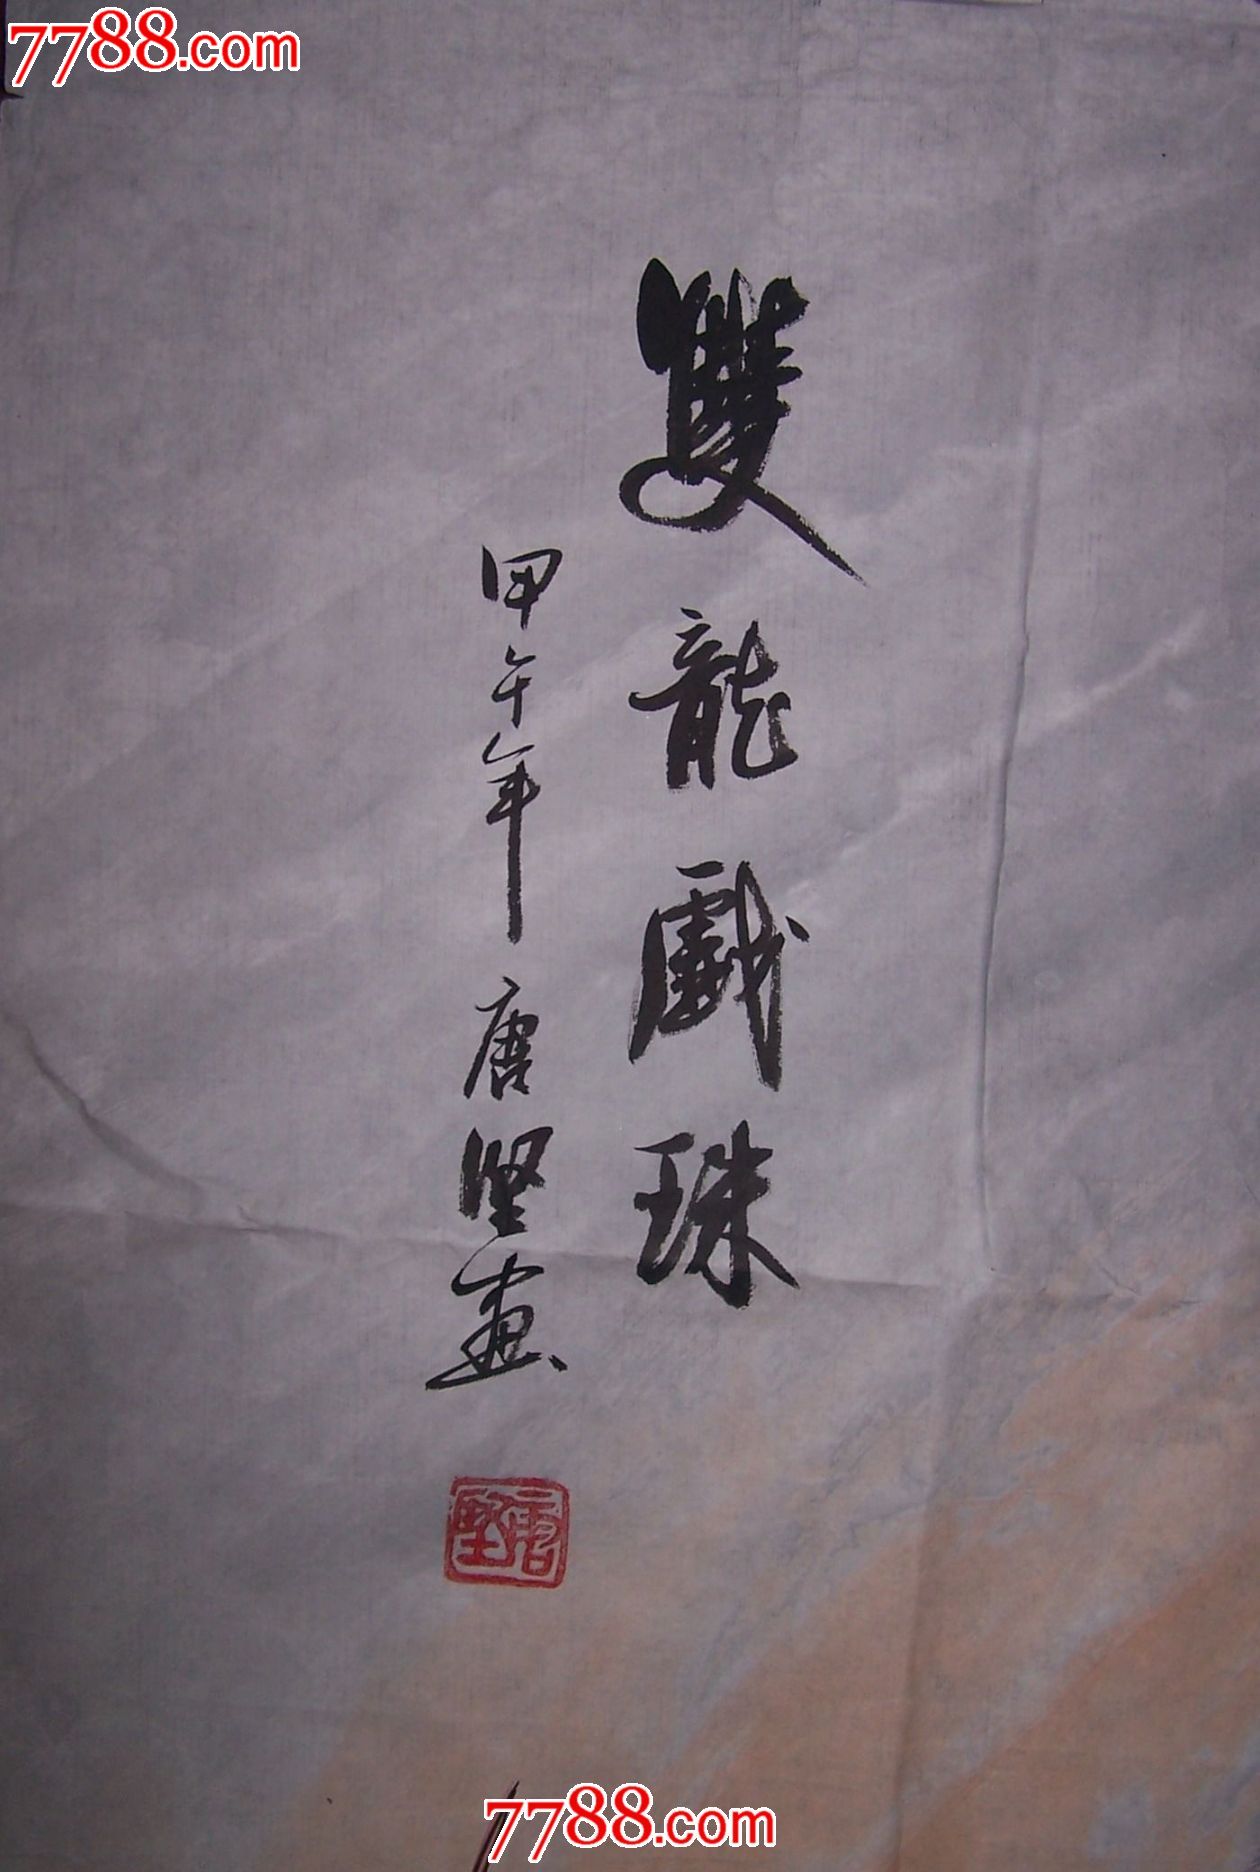 7788.com
雙龍戲珠
甲午年 唐坚畫
唐堅
7788.com